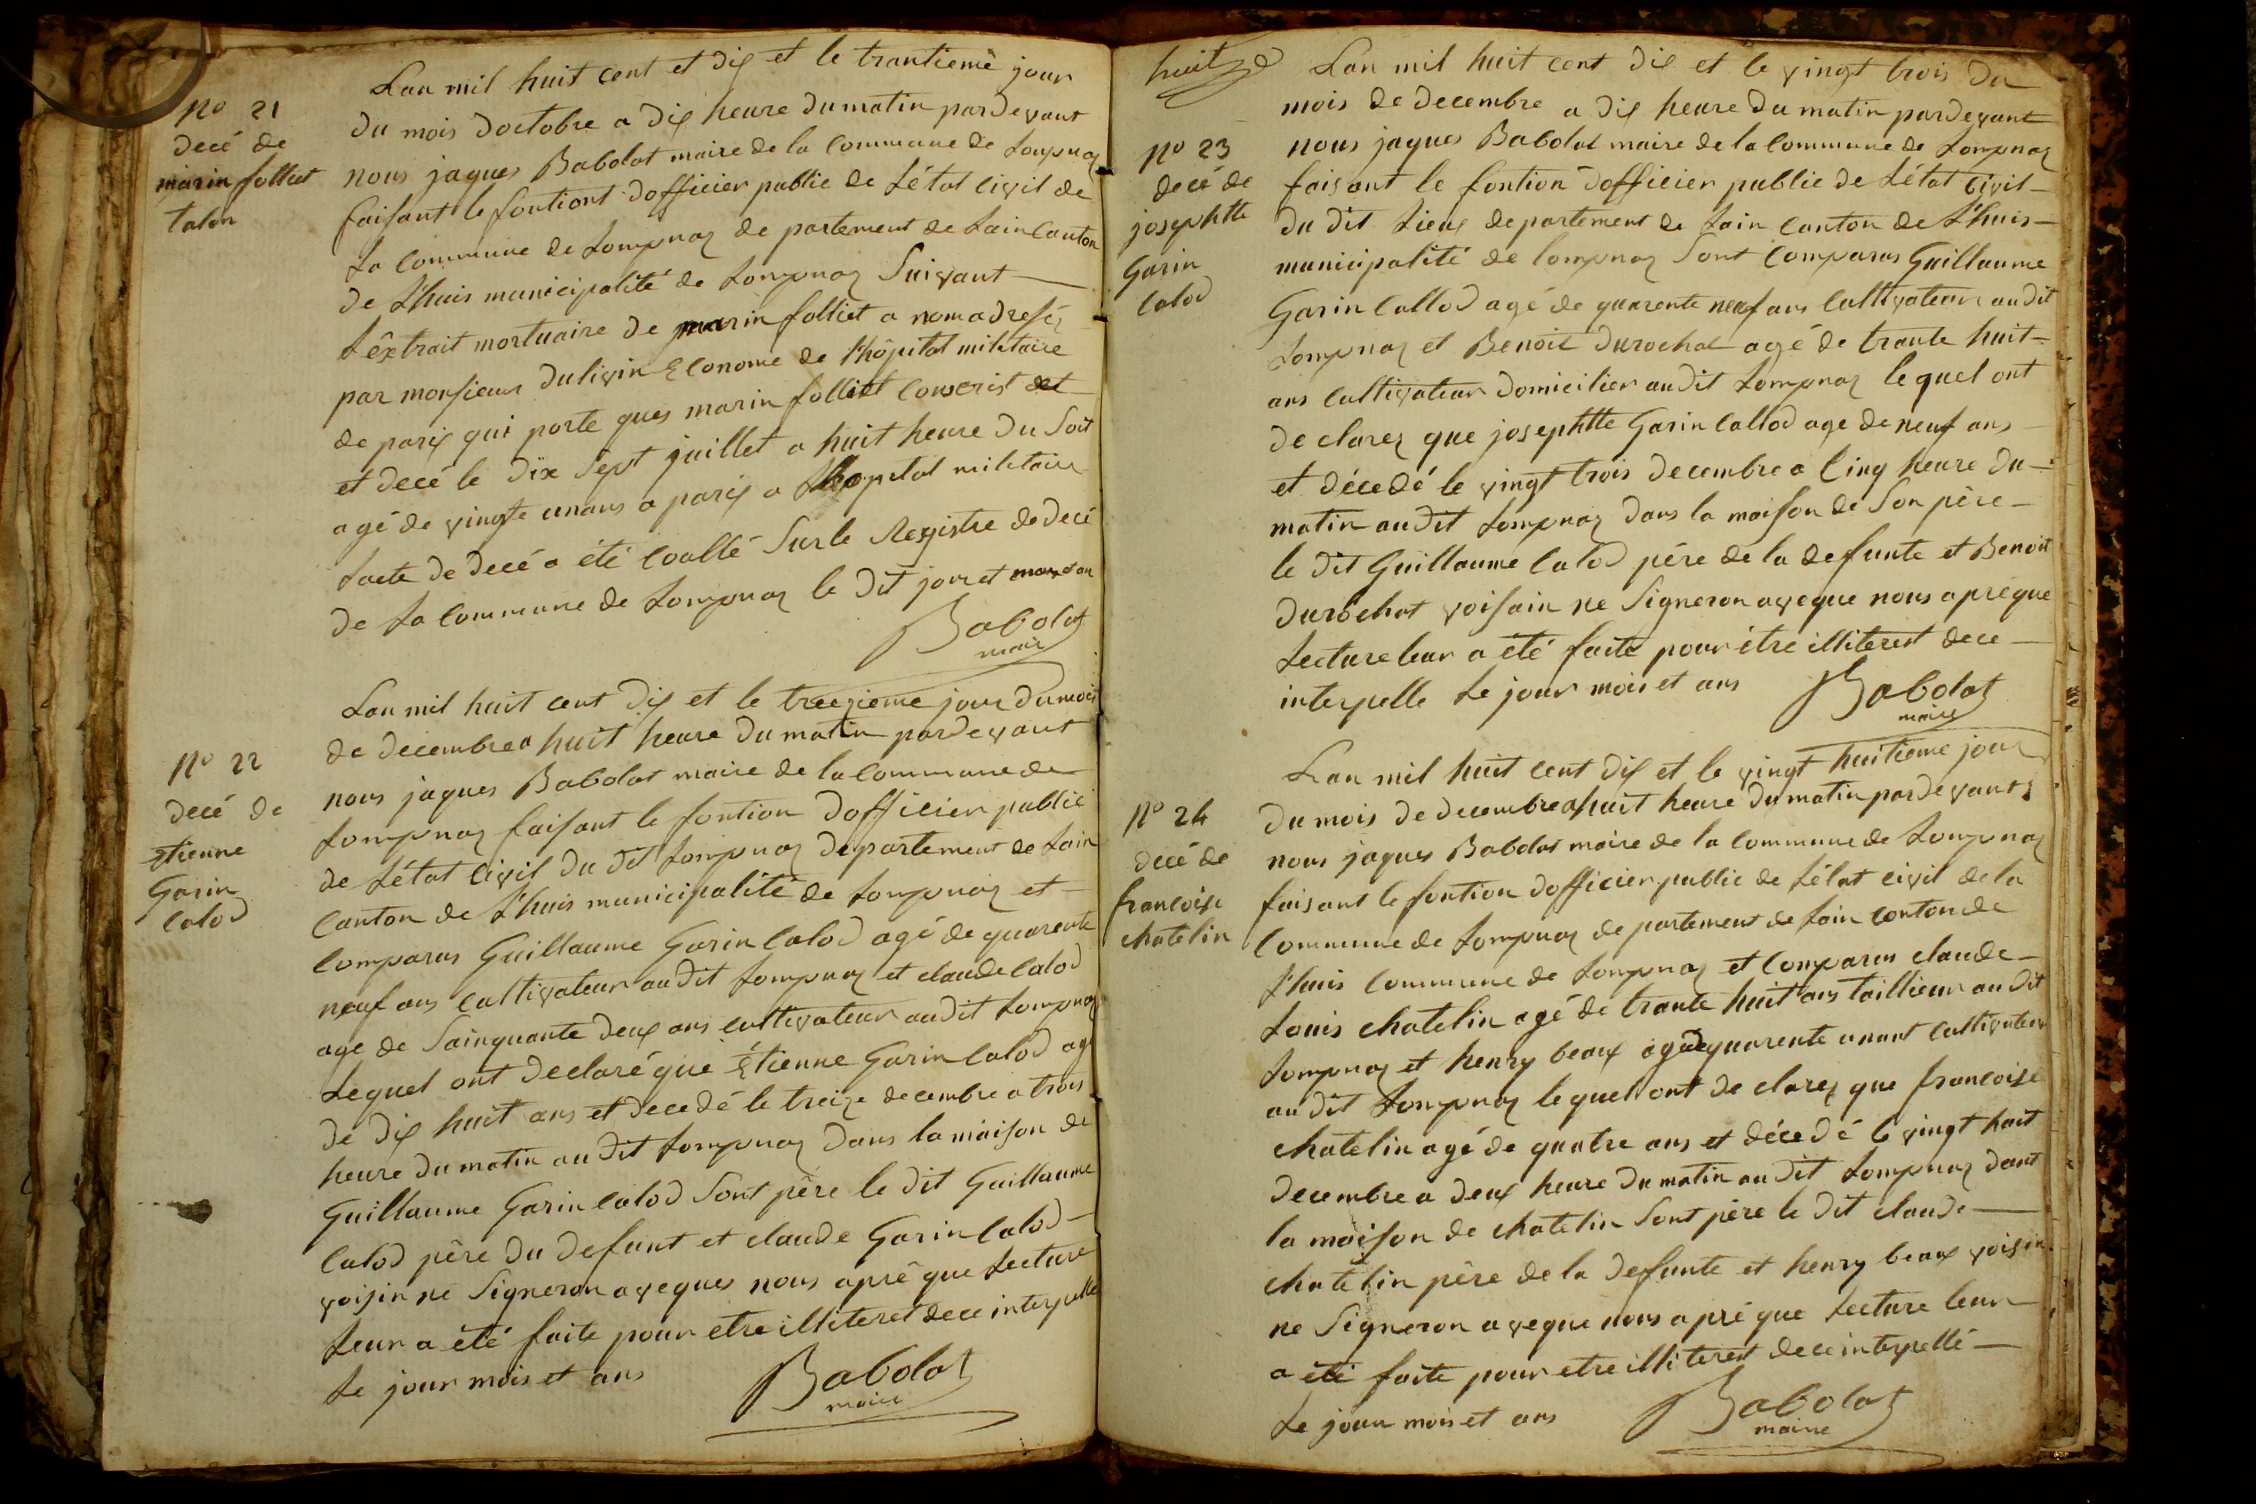 No 21
decé de
marin folliet
talon
Lan mil huit cent et dix et le trantieme jour
du mois doctobre a dix heure du matin pardevant
nous jaques Babolat maire de la commune de Lompnaz
faisant le fontiont dofficier public de Létat civil de
La commune de Lompnaz de partement de Lain canton
de Lhuis municipalité de Lompnaz Suivant
Lêxtrait mortuaire de marin folliet a nom adresér
par monsieur dulivin Econome de Lhôpital militaire
de paris qui porte ques marin folliet conscrist
et decé le dix Sept juillet a huit heure du Soit
agé de vingte un ans a paris a Lhopital militaire
Lacte de decé a été coullé Sur le Registre de decé
de La commune de Lompnaz le dit jour et an
Babolat
maire
No 22
decé de
Etienne
Garin
Calod
Lan mil huit cent dix et le treezieme jour du mois
de decembre a huit heure du matin pardevant
nous jaques Babolat maire de la commune de
Lompnaz faisant le fontion dofficier public
de Létat civil du dit Lompnaz departement de Lain
canton de Lhuis municipalité de Lompnaz et
comparus Guillaume Garin Calod agé de quarente
neuf ans cultivateur audit Lompnaz et claude calod
age de Sainquante deux ans cultivateur audit Lompnaz
Lequel ont declaré que Étienne Garin Calod agé
de dix huit ans et decedé le treize decembre a trois
heure du matin audit Lompnaz dans la maison de
Guillaume Garin calod Sont père le dit Guillaume
Calod père du defunt et claude Garin Calod
voisin ne Signeron aveques nous aprè que Lecture
Leur a été faite pour etre illiteret dece interpellé
Le jour mois et ans
Babolat
maire
huit
No 23
decé de
josephtte
Garin
Calod
Lan mil huit cent dix et le vingt trois du
mois de decembre a dix heure du matin pardevant
nous jaques Babolat maire de la commune de Lompnaz
faisant le fontion dofficier public de Létat civil
du dit Lieux departement de Lain canton de Lhuis
municipalité de lompnaz Sont comparus Guillaume
Garin Callod agé de quarente neuf ans cultivateur audit
Lompnaz et Benoit durochat agé de trante huit
ans cultivateur domicilier audit Lompnaz le quel ont
de clarez que josephtte Garin Callod age de neuf ans
et décedé le vingt trois decembre a cinq heure du
matin audit Lompnaz dans la maison de Son père
le dit Guillaume Calod père de la defunte et Benoit
durochat voisain ne Signeron aveque nous aprè que
Lecture leur a été faite pour être illiterest dece
interpelle Le jour mois et ans
Babolat
maire
No 24
decé de
francoise
chatelin
Lan mil huit cent dix et le vingt huitieme jour
du mois de decembre a huit heure du matin par devant
nous jaques Babolat maire de la commune de Lompnaz
faisant le fontion dofficier public de Létat civil de la
commune de Lompnaz de partement de Lain conton de
Lhuis commune de Lompnaz et comparus claude
Louis chatelin agé de trante huit ans taillieur au dit
Lompnaz et henry beaux agé de quarente un ant cultivateur
au dit Lompnaz le quel ont de clarez que francoise
chatelin agé de quatre ans et décedé le vingt huit
decembre a deux heure du matin au dit Lompnaz dant
la maison de chatelin Sont père le dit claude
chatelin père de la defunte et henry beaux voisin
ne Signeron aveque nous aprè que Lecture leur
a été faite pour etre illiterest dece interpellé
Le jour mois et ans
Babolat
maire